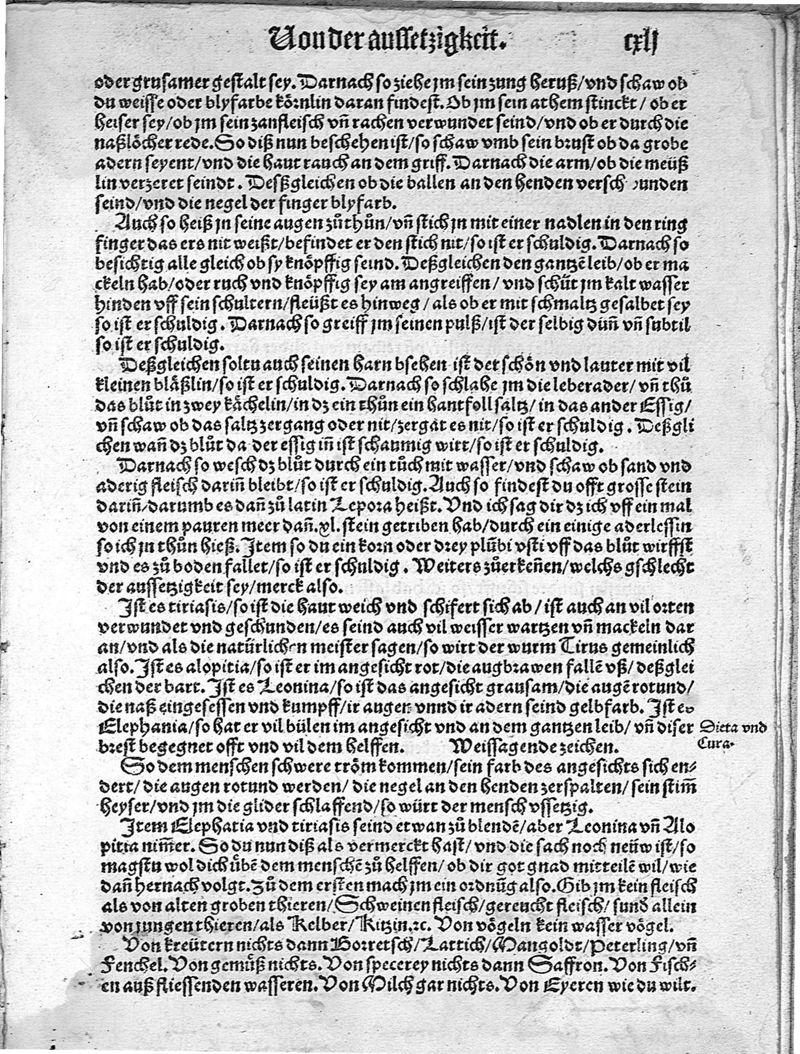 Von der aussetzigkeit. cxlj
oder grusamer gestalt sey. Darnach so ziehe jm sein zung heruß/vnd schaw ob
du weisse oder blyfarbe körnlin daran findest. Ob jm sein athem stinckt / ob er
heiser sey/ob jm sein zanfleisch vñ rachen verwundet seind/vnd ob er durch die
naßlöcher rede. So diß nun beschehen ist/so schaw vmb sein brust ob da grobe
adern seyent/vnd die haut rauch an dem griff. Darnach die arm/ob die meüß
lin verzeret seindt. Deßgleichen ob die ballen an den henden verschwunden
seind/vnd die negel der finger blyfarb.
Auch so heiß jn seine augen zůthůn/vñ stich jn mit einer nadlen in den ring
finger das ers nit weißt/befindet er den stich nit/so ist er schuldig. Darnach so
besichtig alle gleich ob sy knöpffig seind. Deßgleichen den gantzẽ leib/ob er ma
ckeln hab/oder ruch vnd knöpffig sey am angreiffen / vnd schüt jm kalt wasser
hinden vff sein schultern/fleüßt es hinweg / als ob er mit schmaltz gesalbet sey
so ist er schuldig. Darnach so greiff jm seinen pulß/ist der selbig düñ vñ subtil
so ist er schuldig.
Deßgleichen soltu auch seinen harn bsehen ist der schön vnd lauter mit vil
kleinen bläßlin/so ist er schuldig. Darnach so schlahe jm die leberader/ vñ thů
das blůt in zwey kächelin/in dz ein thůn ein hantfoll saltz/ in das ander Essig/
vñ schaw ob das saltz zergang oder nit/zergat es nit/so ist er schuldig. Deßgli
chen wañ dz blůt da der essig iñ ist schaumig wirt/so ist er schuldig.
Darnach so wesch dz blůt durch ein tůch mit wasser/vnd schaw ob sand vnd
aderig fleisch dariñ bleibt/so ist er schuldig. Auch so findest du offt grosse stein
dariñ/darumb es dañ zů latin Lepora heißt. Vnd ich sag dir dz ich vff ein mal
von einem pauren meer dañ .xl. stein getriben hab/durch ein einige aderlessin
so ich jn thůn hieß. Item so du ein korn oder drey plũbi vsti vff das blůt wirffst
vnd es zů boden fallet/so ist er schuldig. Weiters zůerkeñen/welchs gschlecht
der aussetzigkeit sey/merck also.
Ist es tiriasis/so ist die haut weich vnd schifert sich ab / ist auch an vil orten
verwundet vnd geschunden/es seind auch vil weisser wartzen vñ mackeln dar
an/vnd als die natürlichen meister sagen/so wirt der wurm Tirus gemeinlich
also. Ist es alopitia/so ist er im angesicht rot/die augbrawen fallẽ vß/deßglei
chen der bart. Ist es Leonina/so ist das angesicht grausam/die augẽ rotund/
die naß eingesessen vnd kumpff/ir augen vnnd ir adern seind gelbfarb. Ist es
Elephania/so hat er vil bülen im angesicht vnd an dem gantzen leib/ vñ diser
brest begegnet offt vnd vil dem helffen. Weissagende zeichen.
Dieta vnd
Cura.
So dem menschen schwere tröm kommen/sein farb des angesichts sich en-
dert/die augen rotund werden/ die negel an den henden zerspalten/ sein stim̃
heyser/vnd jm die glider schlaffend/so würt der mensch vssetzig.
Item Elephatia vnd tiriasis seind etwan zů blendẽ/aber Leonina vñ Alo
pitia nim̃er. So du nun diß als vermerckt hast/ vnd die sach noch neüw ist/so
magstu wol dich übẽ dem menschẽ zů helffen/ ob dir got gnad mitteilẽ wil/wie
dañ hernach volgt. Zů dem ersten mach jm ein ordnũg also. Gib jm kein fleisch
als von alten groben thieren/Schweinen fleisch/gereucht fleisch/ sund̃ allein
von jungen thieren/als Kelber/Kitzin.ꝛc. Von vögeln kein wasser vögel.
Von kreütern nichts dann Borretsch/Lattich/Mangoldt/Peterling/vñ
Fenchel. Von gemůß nichts. Von specerey nichts dann Saffron. Von Fisch-
en auß fliessenden wasseren. Von Milch gar nichts. Von Eyeren wie du wilt.